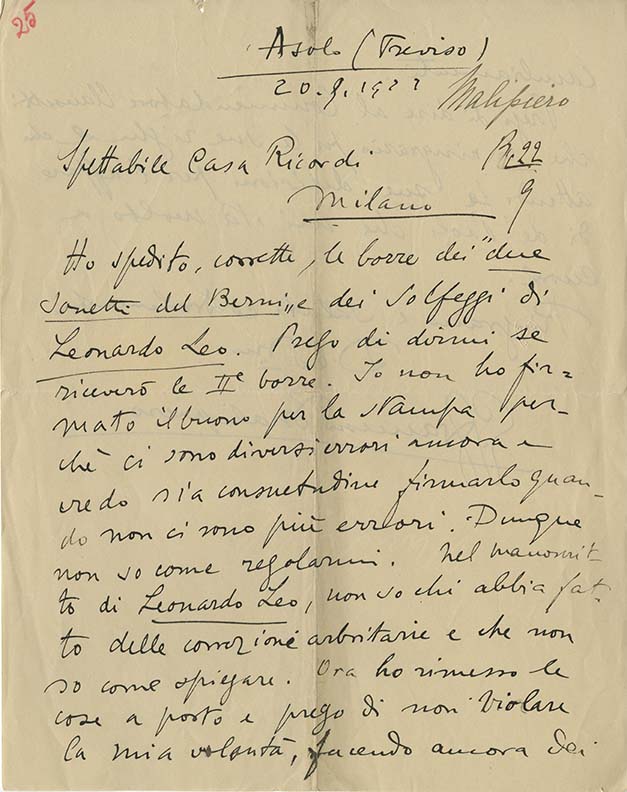 25
Asolo (Treviso)
20.9.1922
Malipiero
Spettabile Casa Ricordi
22
9
Milano
Ho spedito, corrette, le bozze dei "due
sonetti del Berni" e dei Solfeggi di
Leonardo Leo. Prego di dirmi se
riceverò le IIe bozze. Io non ho fir=
mato il buono per la stampa per-
chè ci sono diversi errori ancora e
credo sia consuetudine firmarlo quan-
do non ci sono più errori. Dunque
non so come regolarmi. Nel manoscrit-
to di Leonardo Leo, non so chi abbia fat-
to delle correzioni arbitrarie e che non
so come spiegare. Ora ho rimesso le
cose a posto e prego di non violare
la mia volontà, facendo ancora dei